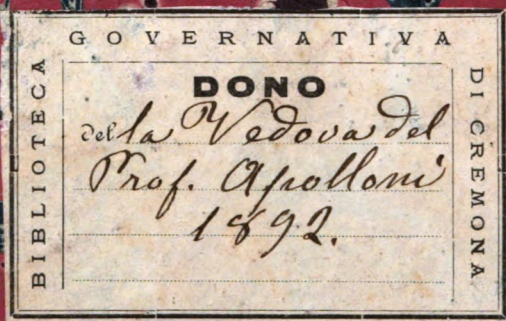 BIBLIOTECA
GOVERNATIVA
DI CREMONA
DONO
della Vedova del
Prof. Apolloni
1892.